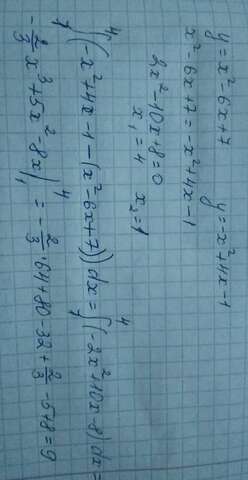 y=x²-6x+7 y=-x²+4x-1
x²-6x+7=-x²+4x-1
2x²-10x+8=0
x₁=4 x₂=1
∫₁⁴(-x²+4x-1-(x²-6x+7))dx=∫₁⁴(-2x²+10x-8)dx=
-2/3x³+5x²-8x|₁⁴=-2/3·64+80-32+2/3-5+8=9